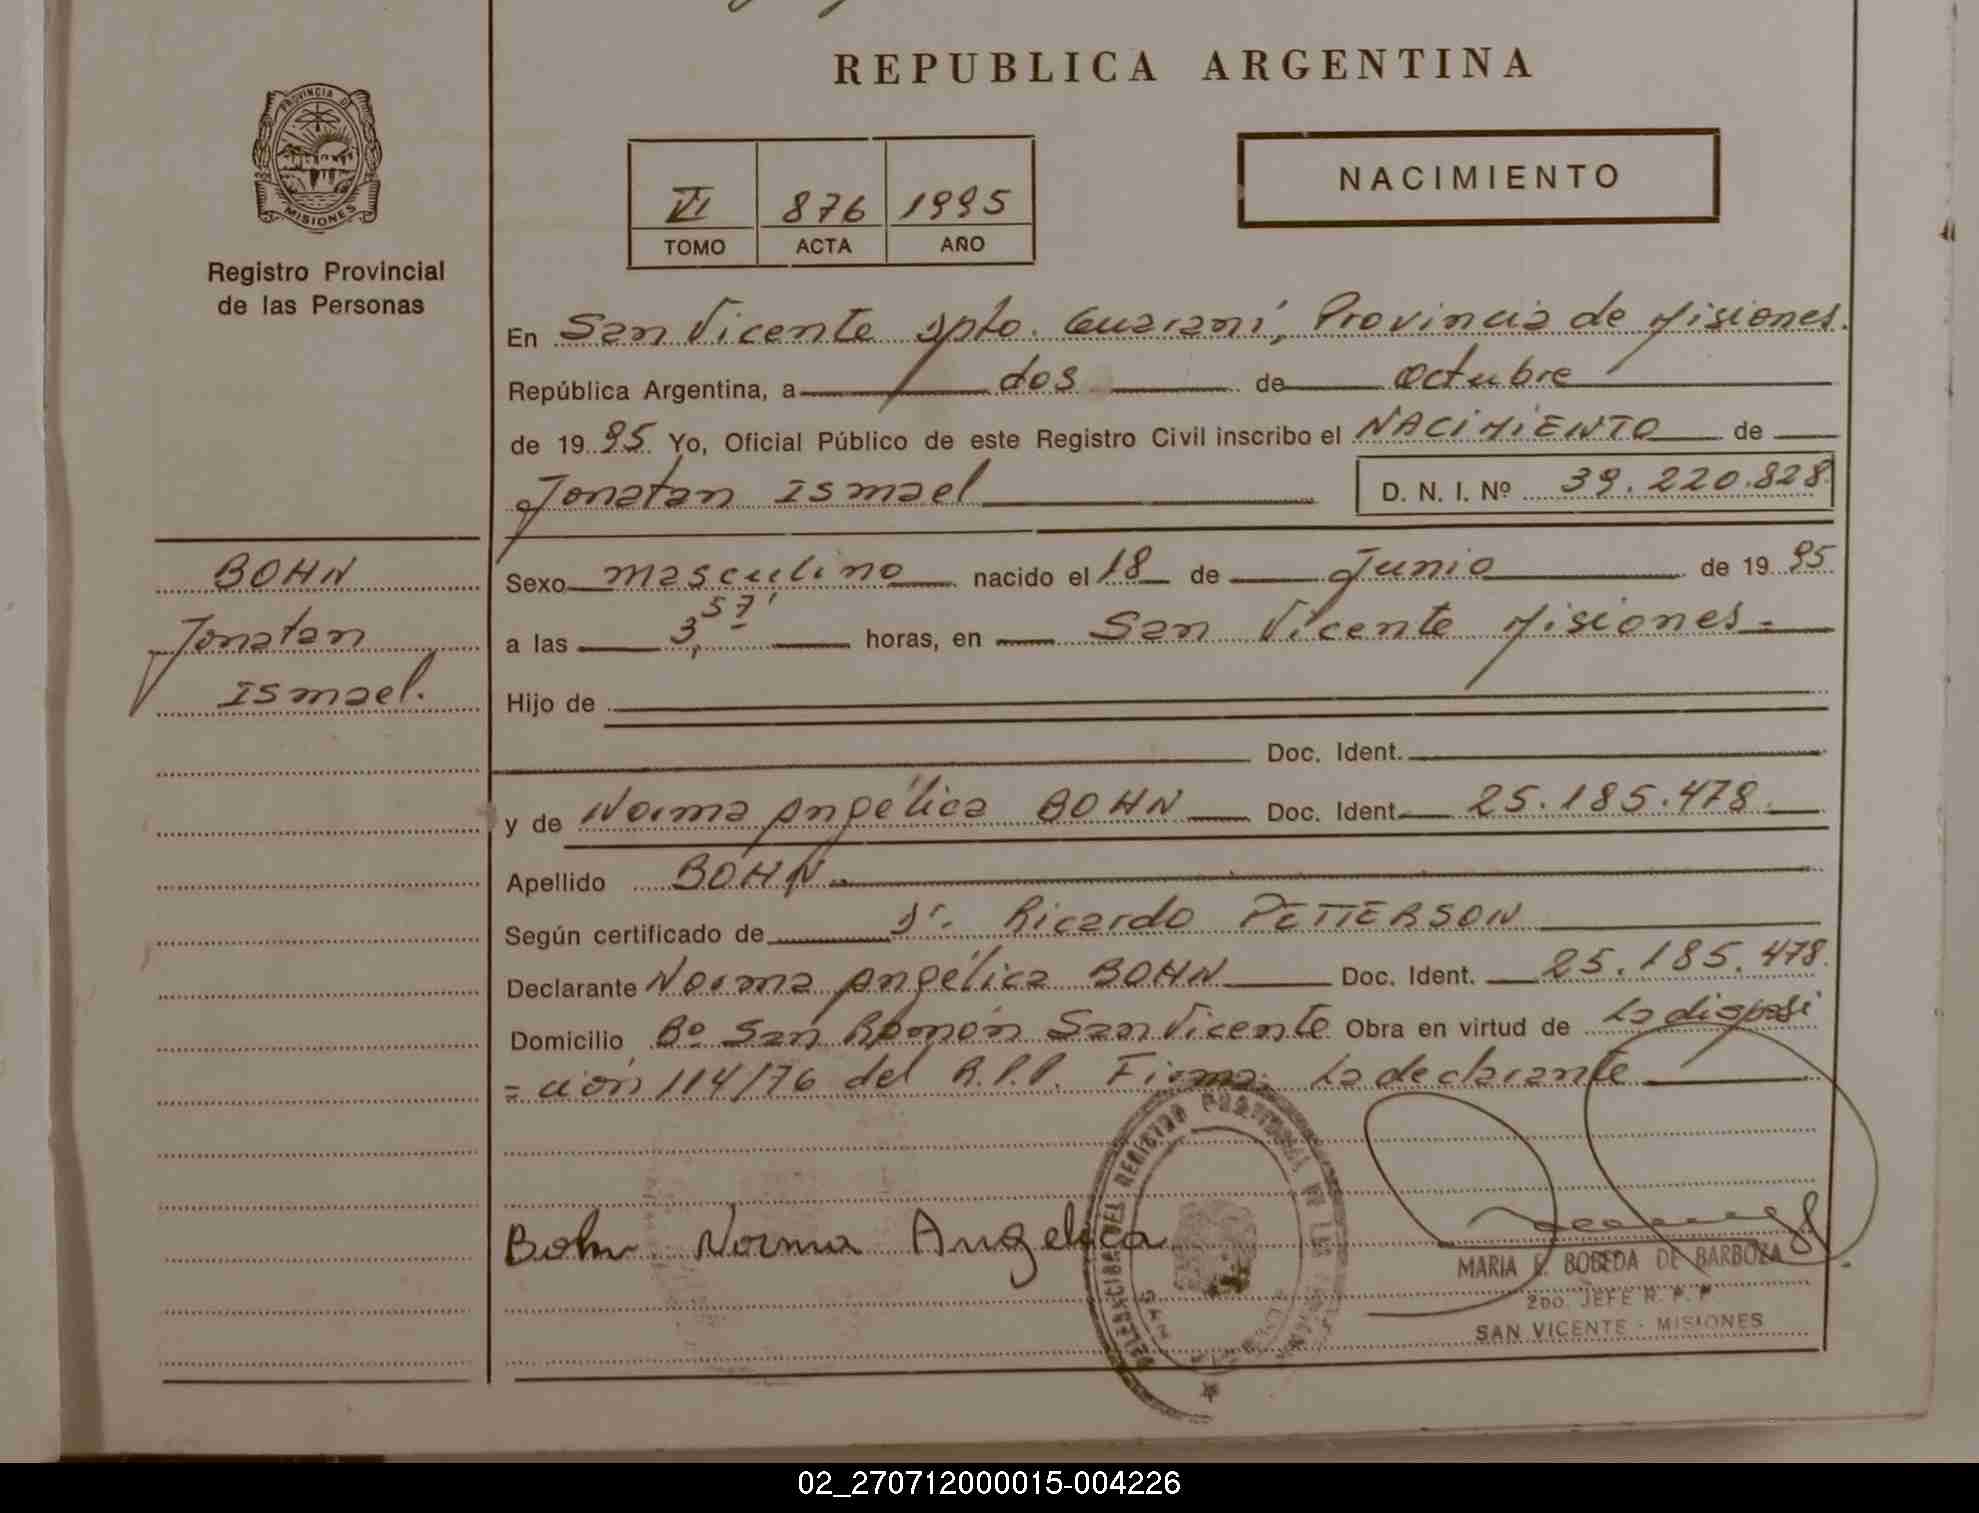 REPUBLICA ARGENTINA
PROVINCIA DE
MISIONES
Registro Provincial
de las Personas
VI 876 1995
TOMO ACTA AÑO
NACIMIENTO
En San Vicente Dpto. Guaraní, Provincia de Misiones.
República Argentina, a dos de Octubre
de 1995 Yo, Oficial Público de este Registro Civil inscribo el NACIMIENTO de
Jonatan Ismael D. N. I. Nº 39.220.828
BOHN
Jonatan
Ismael.
Sexo masculino nacido el 18 de Junio de 1995
a las 3,57' horas, en San Vicente Misiones =
Hijo de
Doc. Ident.
y de Norma Angélica BOHN Doc. Ident. 25.185.478
Apellido BOHN
Según certificado de Dr. Ricardo PETTERSON
Declarante Norma Angélica BOHN Doc. Ident. 25.185.478
Domicilio Bº San Ramón San Vicente Obra en virtud de La disposi
= ción 114/76 del R.P.P. Firma: La declarante
Bohn Norma Angelica
DELEGACION DEL REGISTRO PROVINCIAL DE LAS
SAN
MARIA E. BOBEDA DE BARBOZA
2DO. JEFE R. P. P
SAN VICENTE - MISIONES
02_270712000015-004226